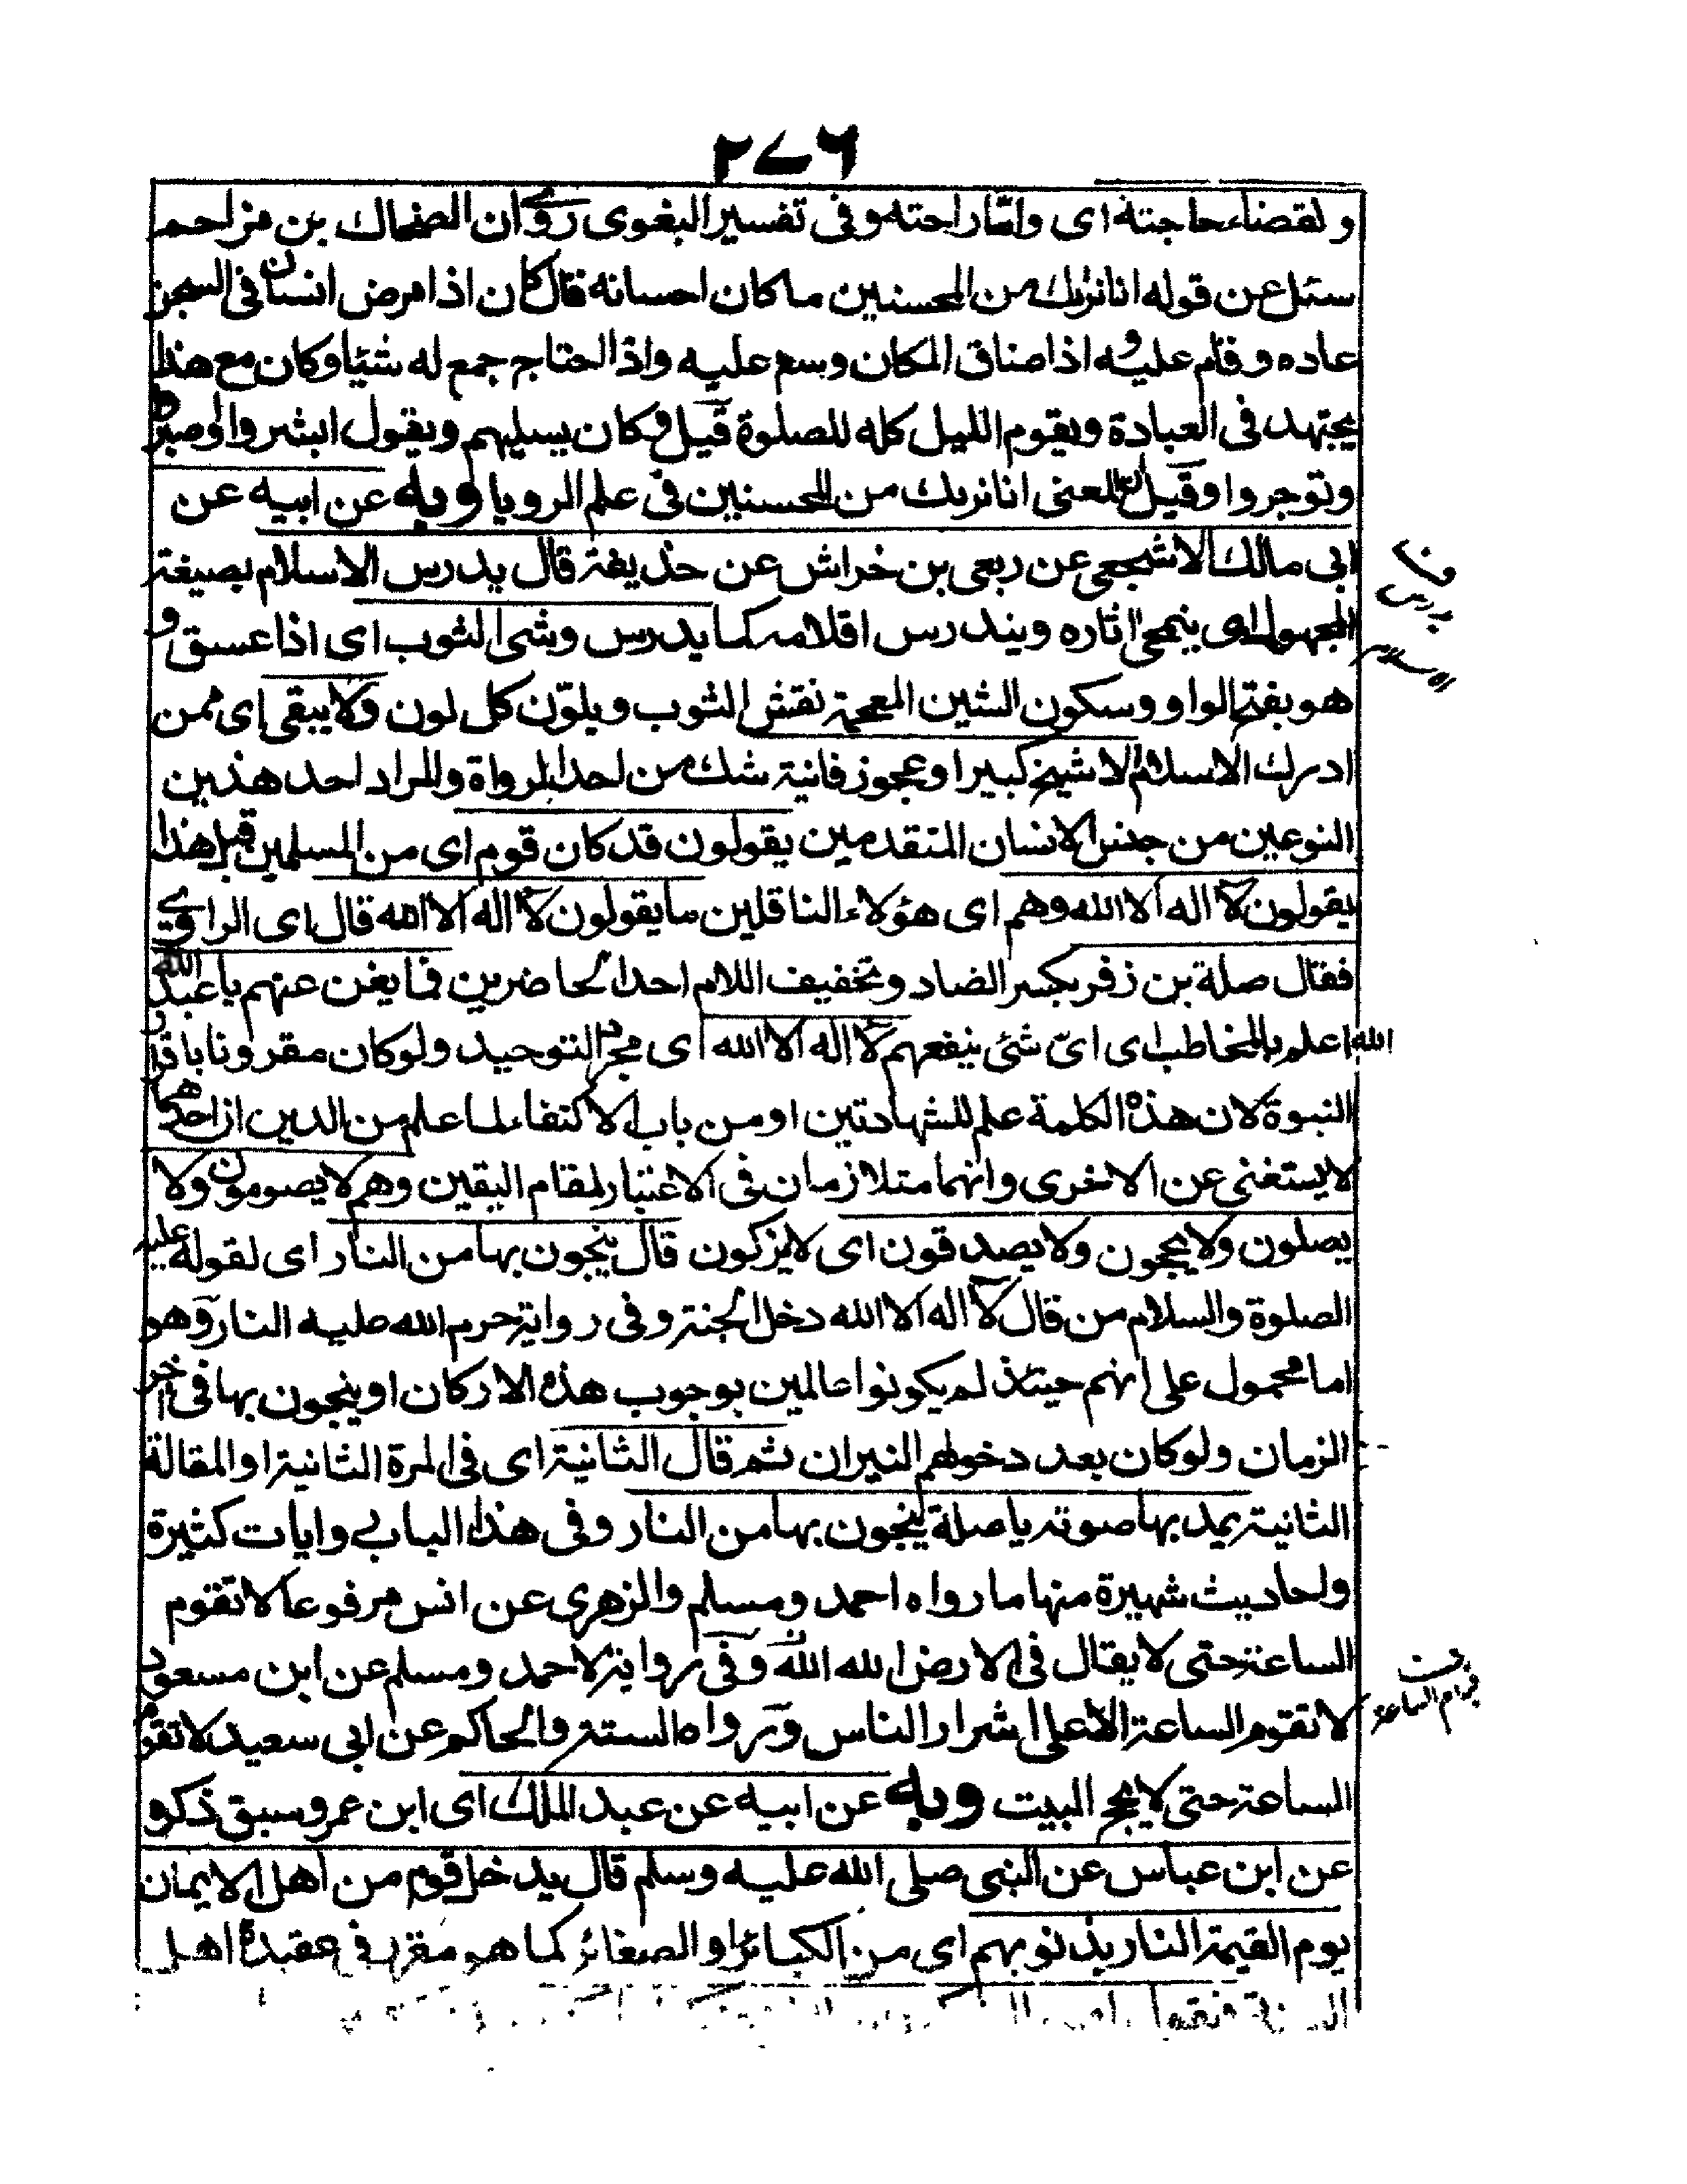 ٢٧٦
ولقضاء حاجته اى واتمار احته وفى تفسير البغوى روى ان الضحاك بن مزاحم
سئل عن قوله انا نريك من المحسنين ما كان احسانه قال كان اذا مرض انسان فى السجن
عاده وقام عليه و اذا ضاق المكان وسع عليه واذا احتاج جمع له شيئا وكان مع هذا
يجتهد فى العبادة ويقوم الليل كله للصلوة قيل وكان يسليهم ويقول ابشروا واصبروا
وتوجروا وقيل ان المعنى انا نريك من المحسنين فى علم الرويا وبه عن ابيه عن
ابى مالك الاشجعى عن ربعى بن خراش عن حذيفة قال يدرس الاسلام بصيغة
المجهول اى ينمحى اثاره ويندرس اقلامه كما يدرس وشى الثوب اى اذا عسق و
هو بفتح الواو وسكون الشين المعجمة نقش الثوب ويلوّن كل لون ولا يبقى اى ممن
ادرك الاسلام الا شيخ كبير او عجوز فانية شك من احد الرواة والمراد احد هذين
النوعين من جنس الانسان المتقدمين يقولون قد كان قوم اى من المسلمين قبل هذا
يقولون لا اله الا الله وهم اى هؤلاء الناقلين ما يقولون لا اله الا الله قال اى الراوى
فقال صلة بن زفر بكسر الضاد وتخفيف اللام احد الحاضرين فما يغن عنهم يا عبد الله
الله اعلم بالمخاطب اى اىّ شئ ينفعهم لا اله الا الله اى مجرد التوحيد ولو كان مقرونا باقرار
النبوة لان هذه الكلمة علم للشهادتين او من باب الاكتفاء لما علم من الدين ان احدهما
لا يستغنى عن الاخرى وانهما متلازمان فى الاعتبار لمقام اليقين وهم لا يصومون ولا
يصلون ولا يحجون ولا يصدقون اى لا يزكون قال ينجون بها من النار اى لقوله عليه
الصلوة والسلام من قال لا اله الا الله دخل الجنة وفى رواية حرم الله عليه النار وهو
اما محمول على انهم حينئذ لم يكونوا عالمين بوجوب هذه الاركان او ينجون بها فى اخر
الزمان ولو كان بعد دخولهم النيران ثم قال الثانية اى فى المرة الثانية او المقالة
الثانية يمد بها صوته يا صلة ينجون بها من النار وفى هذا الباب روايات كثيرة
واحاديث شهيرة منها ما رواه احمد ومسلم والزهرى عن انس مرفوعا لا تقوم
الساعة حتى لا يقال فى الارض الله الله وفى رواية لاحمد ومسلم عن ابن مسعود
لا تقوم الساعة الا على اشرار الناس وروراه الستة والحاكم عن ابى سعيد لا تقوم
الساعة حتى لا يحج البيت وبه عن ابيه عن عبد الملك اى ابن عمرو سبق ذكره
عن ابن عباس عن النبى صلى الله عليه وسلم قال يدخل قوم من اهل الايمان
يوم القيمة النار بذنوبهم اى من الكبائر او الصغائر كما هو مقرر فى عقيدة اهل
درس
الاسلام
قيام الساعة